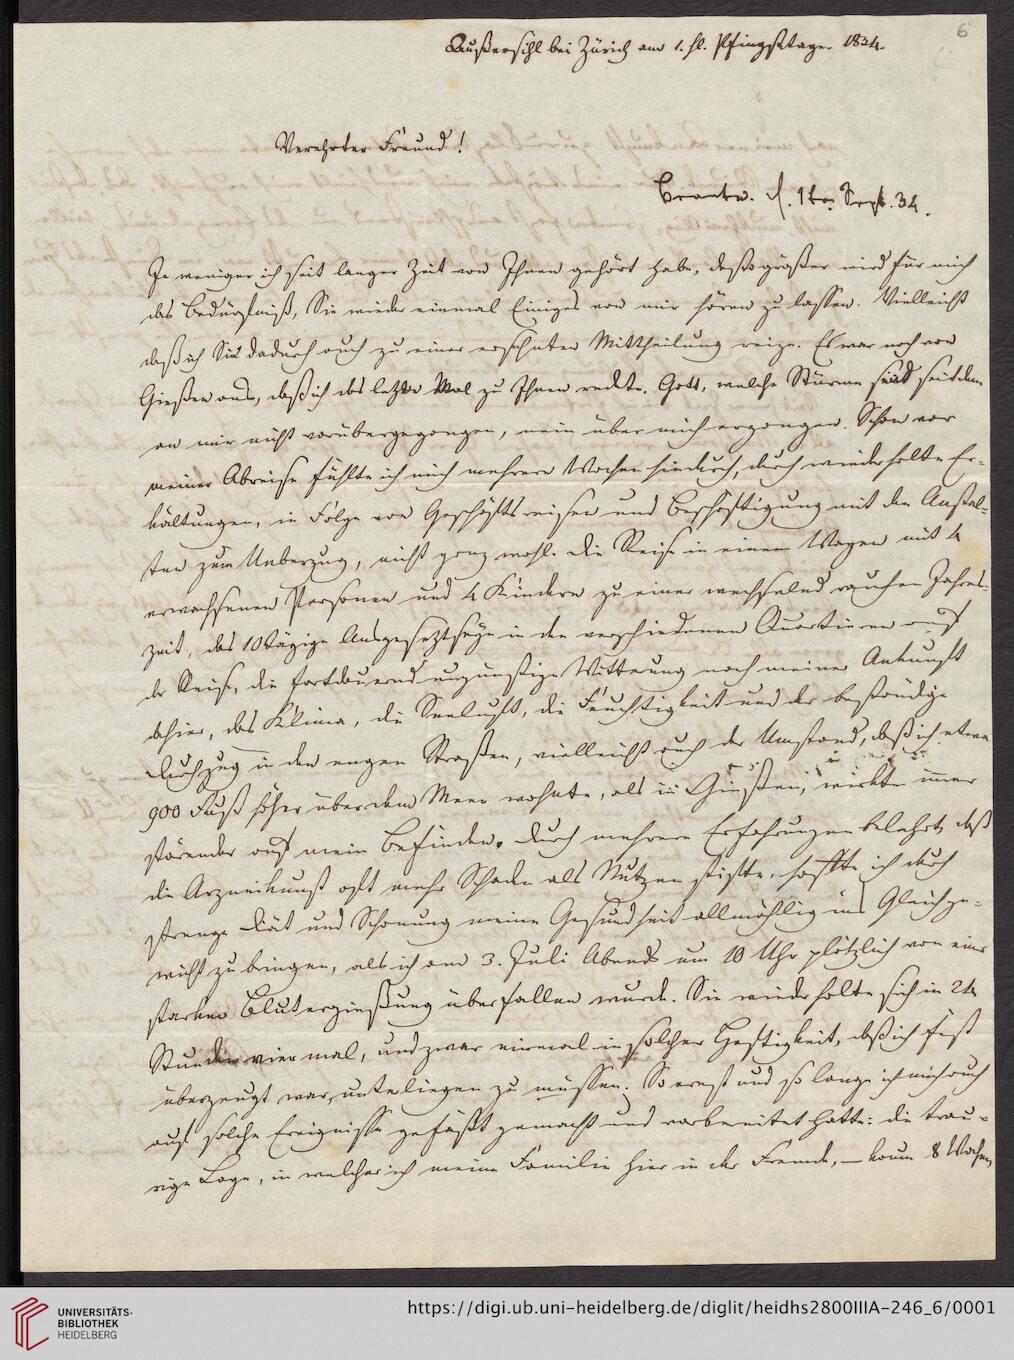 6
Außersihl bei Zürich am 1. hl. Pfingsttage 1834.
Verehrter Freund!
Beantw. d. 1ten Sept. 34.
Je weniger ich seit langer Zeit von Ihnen gehört habe, desto größer wird für mich
das Bedürfniß, Sie wieder einmal Einiges von mir hören zu lassen. Vielleicht
daß ich Sie dadurch auch zu einer ersehnten Mittheilung reize. Es war noch von
Gießen aus, daß ich das letzte Mal zu Ihnen redete. Gott, welche Stürme sind seitdem
an mir nicht vorübergegangen, nein über mich ergangen. Schon vor
meiner Abreise fühlte ich mich mehrere Wochen hindurch, durch wiederholte Er-
kältungen, in Folge von Geschäftsreisen und Beschäftigung mit den Anstal-
ten zum Umzug, nicht ganz wohl. Die Reise in einem Wagen mit 4
erwachsenen Personen und 4 Kindern zu einer wechselnd rauhen Jahres-
zeit, das 10tägige Ausgesetztseyn in den verschiedenen Quartieren auf
der Reise, die fortdauernd ungünstige Witterung nach meiner Ankunft
dahier, das Klima, die Seeluft, die Feuchtigkeit und der beständige
Durchzug in den engen Straßen, vielleicht auch der Umstand, daß ich etwa
900 Fuß höher über dem Meer wohnte, als in Gießen, wirkte immer
störender auf mein Befinden. Durch mehrere Erfahrungen belehrt, daß
die Arzneikunst oft mehr Schaden als Nutzen stifte, hoffte ich durch
strenge Diät und Schonung meine Gesundheit allmählig ins Gleichge-
wicht zu bringen, als ich am 3. Juli Abends um 10 Uhr plötzlich von einer
starken Blutergießung überfallen wurde. Sie wiederholte sich in 24
Stunden vier mal, und zwar einmal in solcher Heftigkeit, daß ich fest
überzeugt war, unterliegen zu müssen. So ernst und so lange ich mich auch
auf solche Ereignisse gefaßt gemacht und vorbereitet hatte: die trau-
rige Lage, in welcher ich meine Familie hier in der Fremde, – kaum 8 Wochen
UNIVERSITÄTS-
BIBLIOTHEK
HEIDELBERG
https://digi.ub.uni-heidelberg.de/diglit/heidhs2800IIIA-246_6/0001